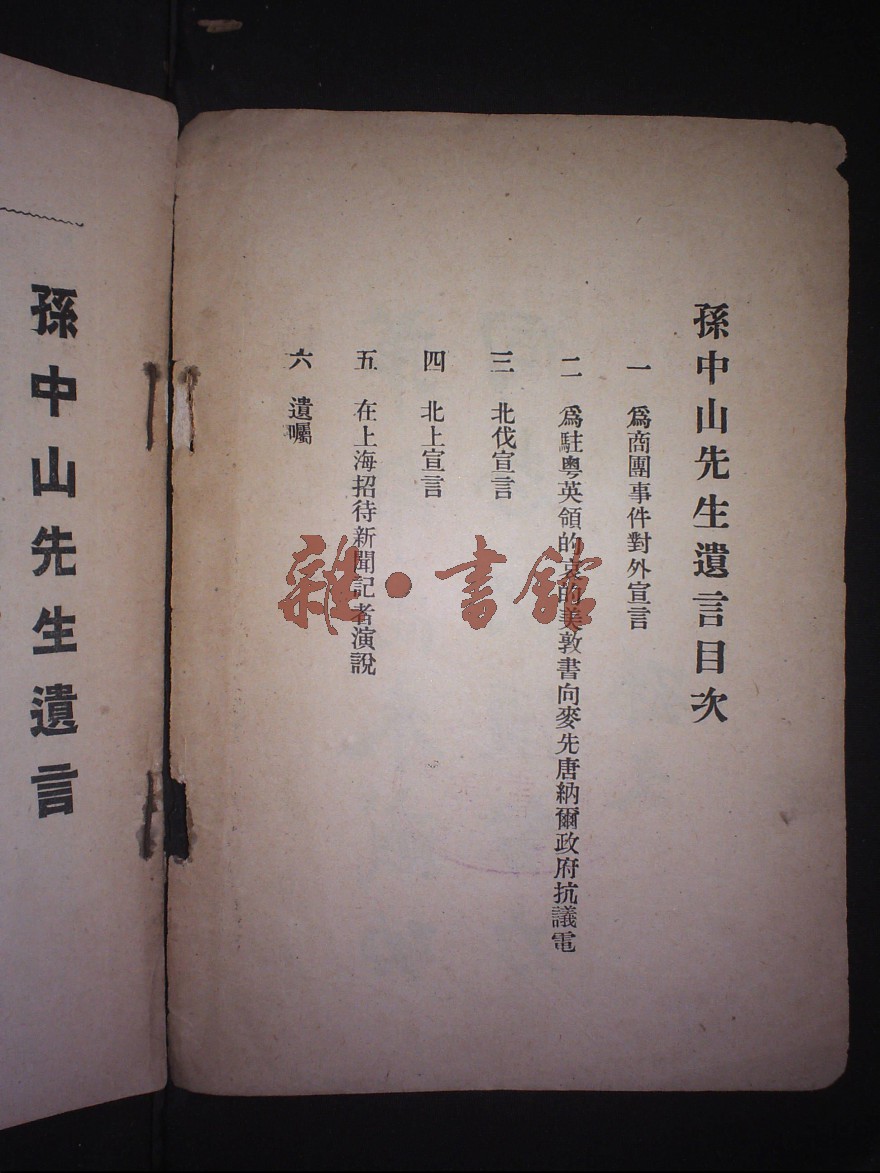 孫中山先生遺言目次
一 爲商團事件對外宣言
二 爲駐粵英領的哀的美敦書向麥先唐納爾政府抗議電
三 北伐宣言
四 北上宣言
五 在上海招待新聞記者演說
六 遺囑
孫中山先生遺言
雜·書館